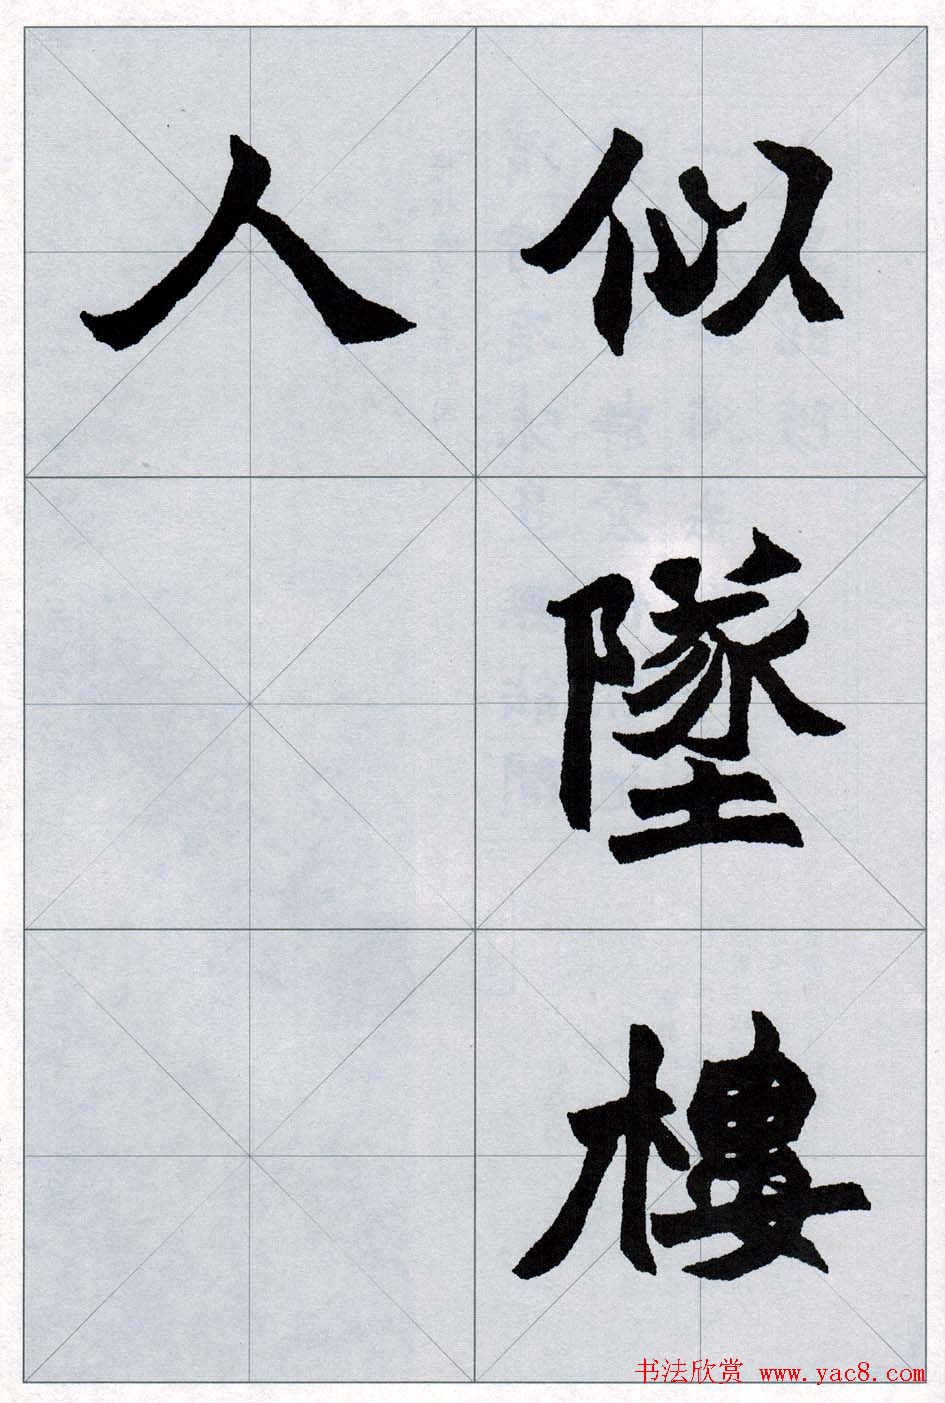 似墜樓
人
书法欣赏 www.yac8.com